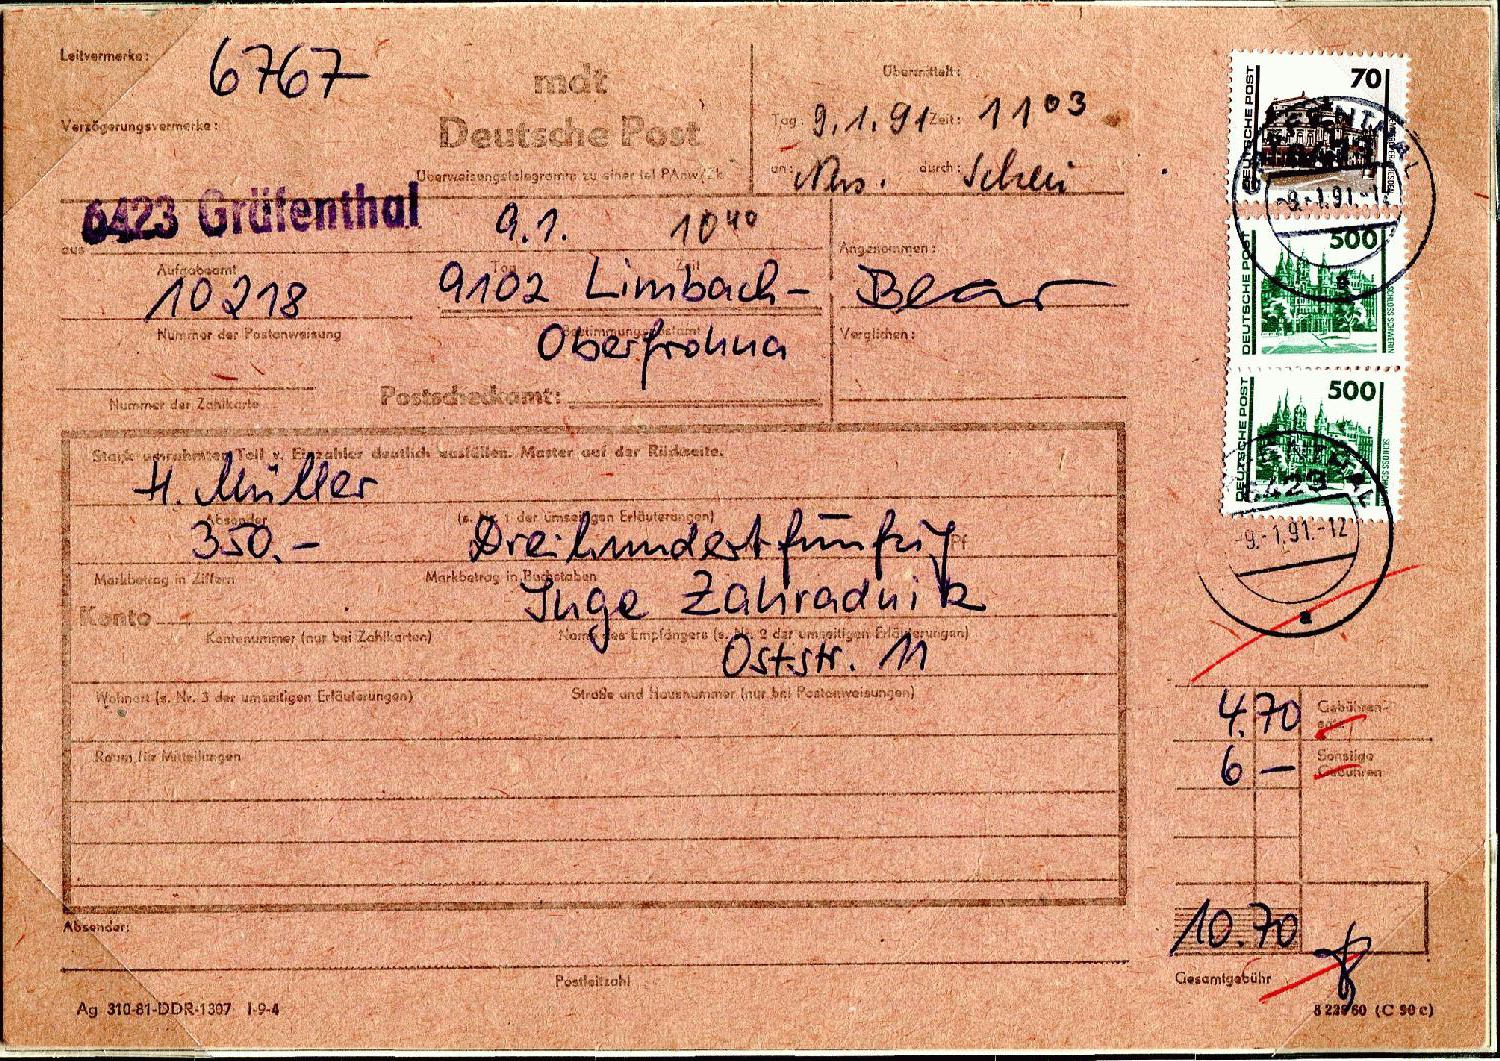 Leitvermerke:
6767
mdt
Deutsche Post
Übermittelt:
Verzögerungsvermerke:
Tag: 9.1.91 Zeit: 11 03
Überweisungstelegramme zu einer tel PAnw/Zk
an: durch:
6423 Gräfenthal
9.1. 10 40
aus
Aufgabeamt
Tag Zeit
Angenommen:
10218
9102 Limbach-
Nummer der Postanweisung
Bestimmungspostamt
Oberfrohna
Verglichen:
Nummer der Zahlkarte
Postscheckamt:
Stark umrahmten Teil v. Einzahler deutlich ausfüllen. Muster auf der Rückseite.
H. Müller
Absender
(s. Nr. 1 der umseitigen Erläuterungen)
350,-
Dreihundertfünfzig
Pf
Markbetrag in Ziffern
Markbetrag in Buchstaben
Inge Zahradnik
Konto
Kontonummer (nur bei Zahlkarten)
Name des Empfängers (s. Nr. 2 der umseitigen Erläuterungen)
Oststr. 11
Wohnort (s. Nr. 3 der umseitigen Erläuterungen)
Straße und Hausnummer (nur bei Postanweisungen)
Raum für Mitteilungen
Absender:
Postleitzahl
Ag 310-81-DDR-1307 I-9-4
70
DEUTSCHE POST
-9.-1.91.-12
500
DEUTSCHE POST
SCHLOSS SCHWERIN
500
DEUTSCHE POST
SCHLOSS SCHWERIN
6423
-9.-1.91.-12
a
4.70
Gebühren-
6 —
Sonstige
Gebühren
10.70
Gesamtgebühr
(C 50 c)